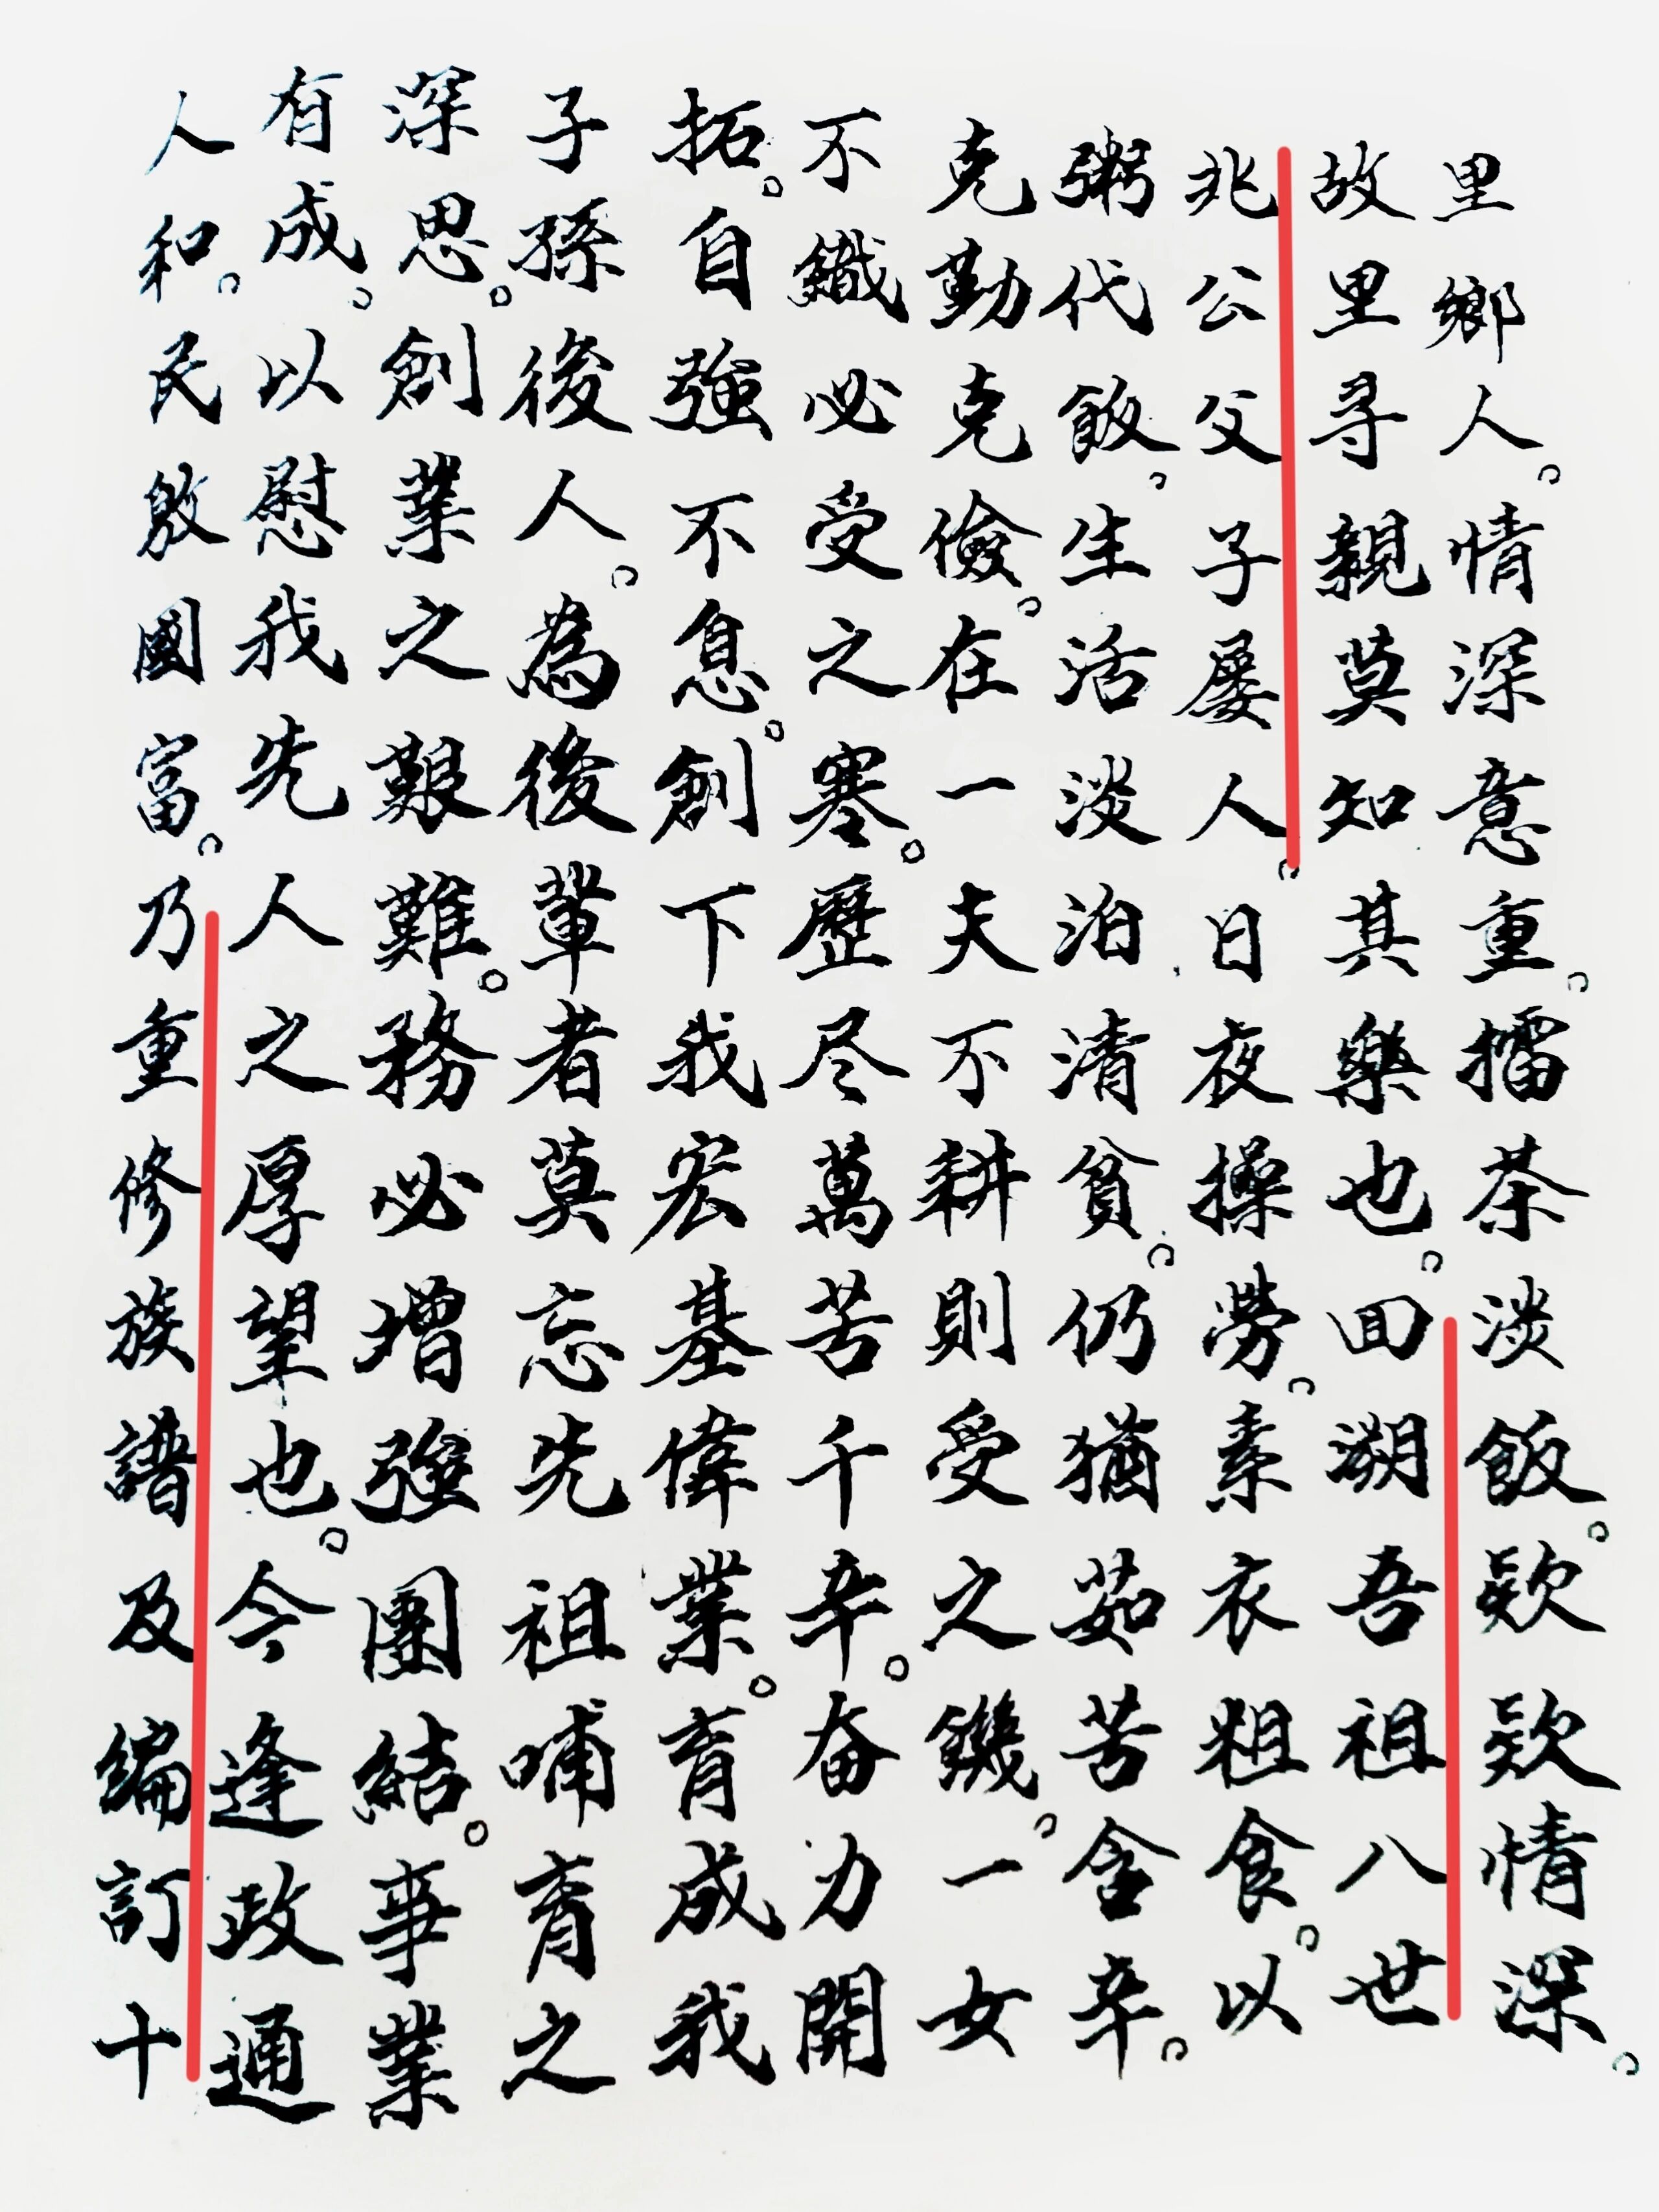 里鄉人。情深意重。擂茶淡飯。欵欵情深。
故里寻親莫知其樂也。回溯吾祖八世
兆公父子屡人。日夜操勞。素衣粗食。以
粥代飯。生活淡泊清貧。仍猶茹苦含辛。
克勤克儉。在一夫不耕則受之饑。一女
不織必受之寒。歷尽萬苦千辛。奋力開
拓。自強不息。創下我宏基偉業。育成我
子孫後人。為後輩者莫忘先祖哺育之
深思。創業之艱難。務必增強團結。事業
有成。以慰我先人之厚望也。今逢政通
人和。民敫國富。乃重修族譜及編訂十